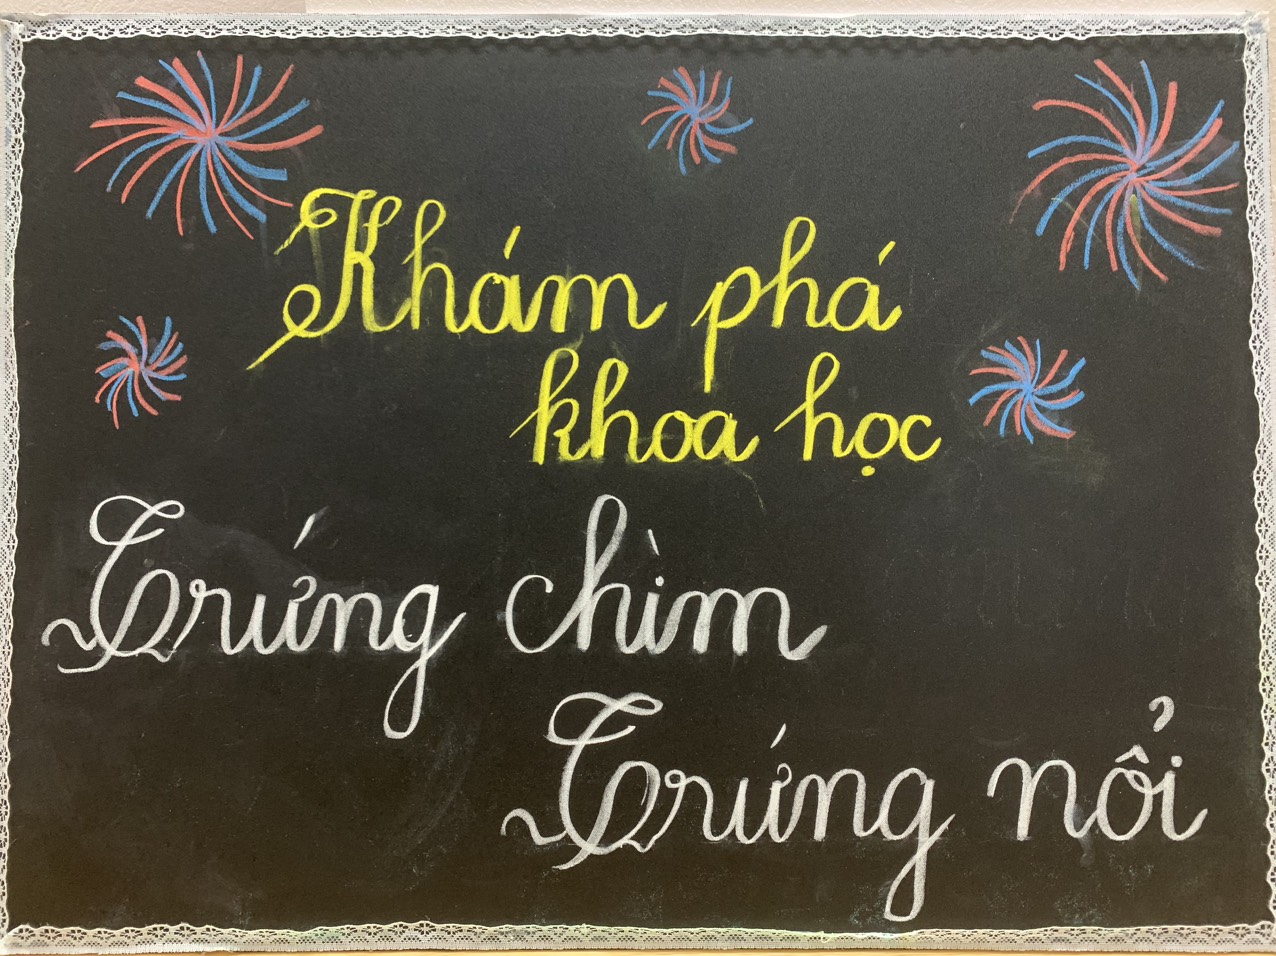 Khám phá
khoa học
Trứng chìm
Trứng nổi